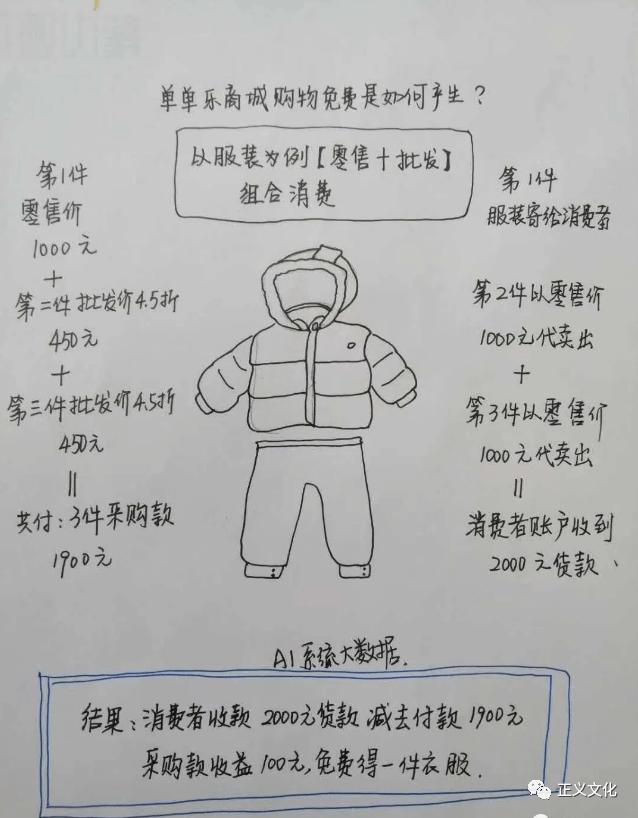 单单乐商城购物免费是如何产生？
以服装为例【零售＋批发】
组合消费
第1件
零售价
1000元
＋
第二件批发价4.5折
450元
＋
第三件批发价4.5折
450元
＝
共付：3件采购款
1900元
第1件
服装寄给消费者
第2件以零售价
1000元代卖出
＋
第3件以零售价
1000元代卖出
＝
消费者账户收到
2000元货款、
AI系统大数据.
结果：消费者收款2000元货款减去付款1900元
采购款收益100元,免费得一件衣服.
正义文化